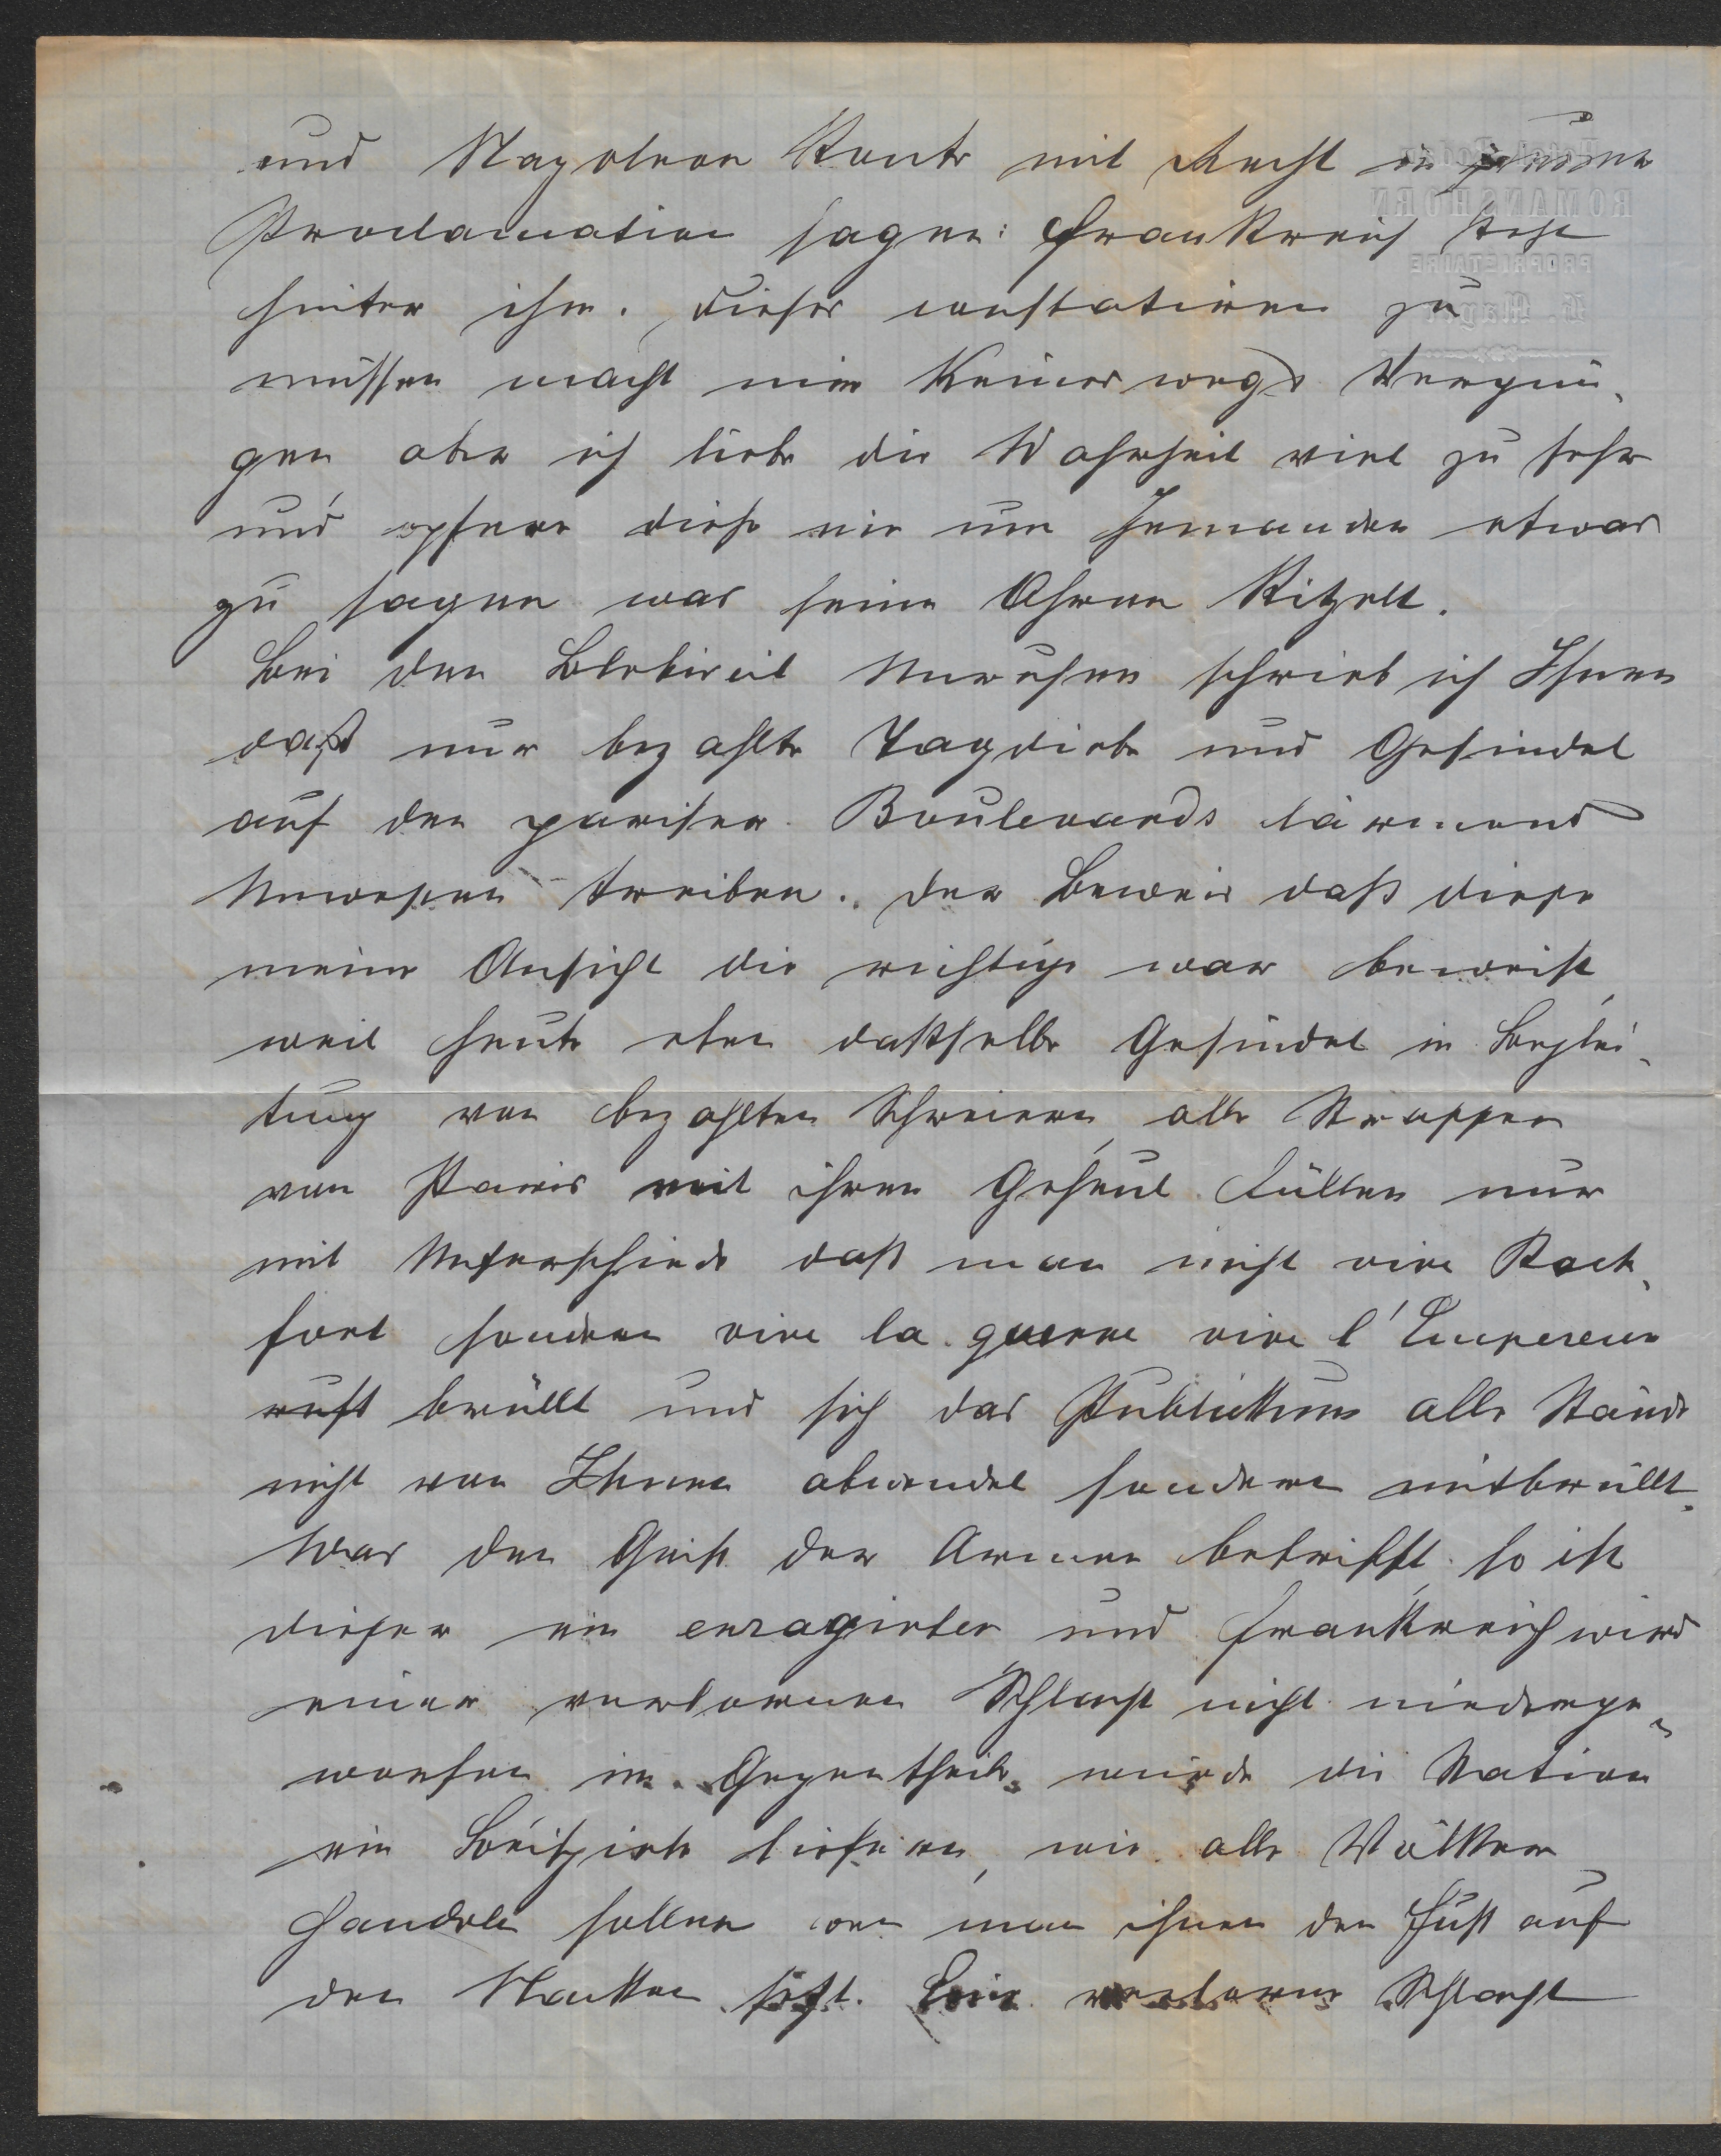 und Napoleon konte mit Recht in seiner
Proclamation sagen: Frankreich stehe
hinter ihm. Dieses constatiren zu
müssen macht mir keineswegs Vergnü-
gen aber ich liebe die Wahrheit viel zu sehr
und opfere diese nie um Jemanden etwas
zu sagen was seine Ohren kitzelt.
Bei den Unruhen schrieb ich Ihnen
daß nur bezahlte Tagdiebe und Gesindel
auf den pariser Boulevards lärmend
Unwesen treiben. Der Beweis daß diese
meine Ansicht die richtige war beweist,
weil heute eben daßselbe Gesindel in Beglei-
tung von bezahlten Schreiern, alle Strassen
von Paris mit ihren Geheul füllen nur
mit Unterschiede daß man nicht vive Roch-
fort sondern vive la guerre vive l'Empereur
ruft brüllt und sich das Publikum alle Stände
nicht von Ihnen abwendet sondern mitbrüllt.
Was den Geist der Armee betrifft, so ist
dieser ein enragirter und Frankreich wird
einer verlornen Schlacht nicht niederge-
worfen im Gegentheile würde die Nation
ein Beispiele liefern, wie alle Völker
handeln sollen wen man ihnen den Fuß auf
den Nacken setzt. Eine verlorne Schlacht
Hotel Bodan
ROMANSHORN
PROPRIETAIRE
Mayer